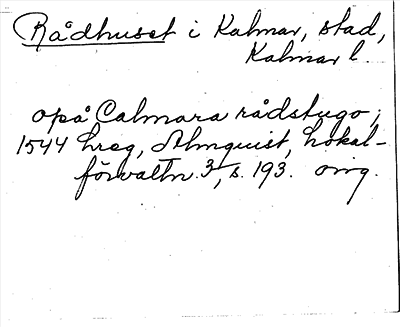 Rådhuset i Kalmar, stad,
Kalmar l.
opå Calmara rådstugo,
1544 hreg, Almquist, Lokal-
förvaltn. 3, s. 193. orig.